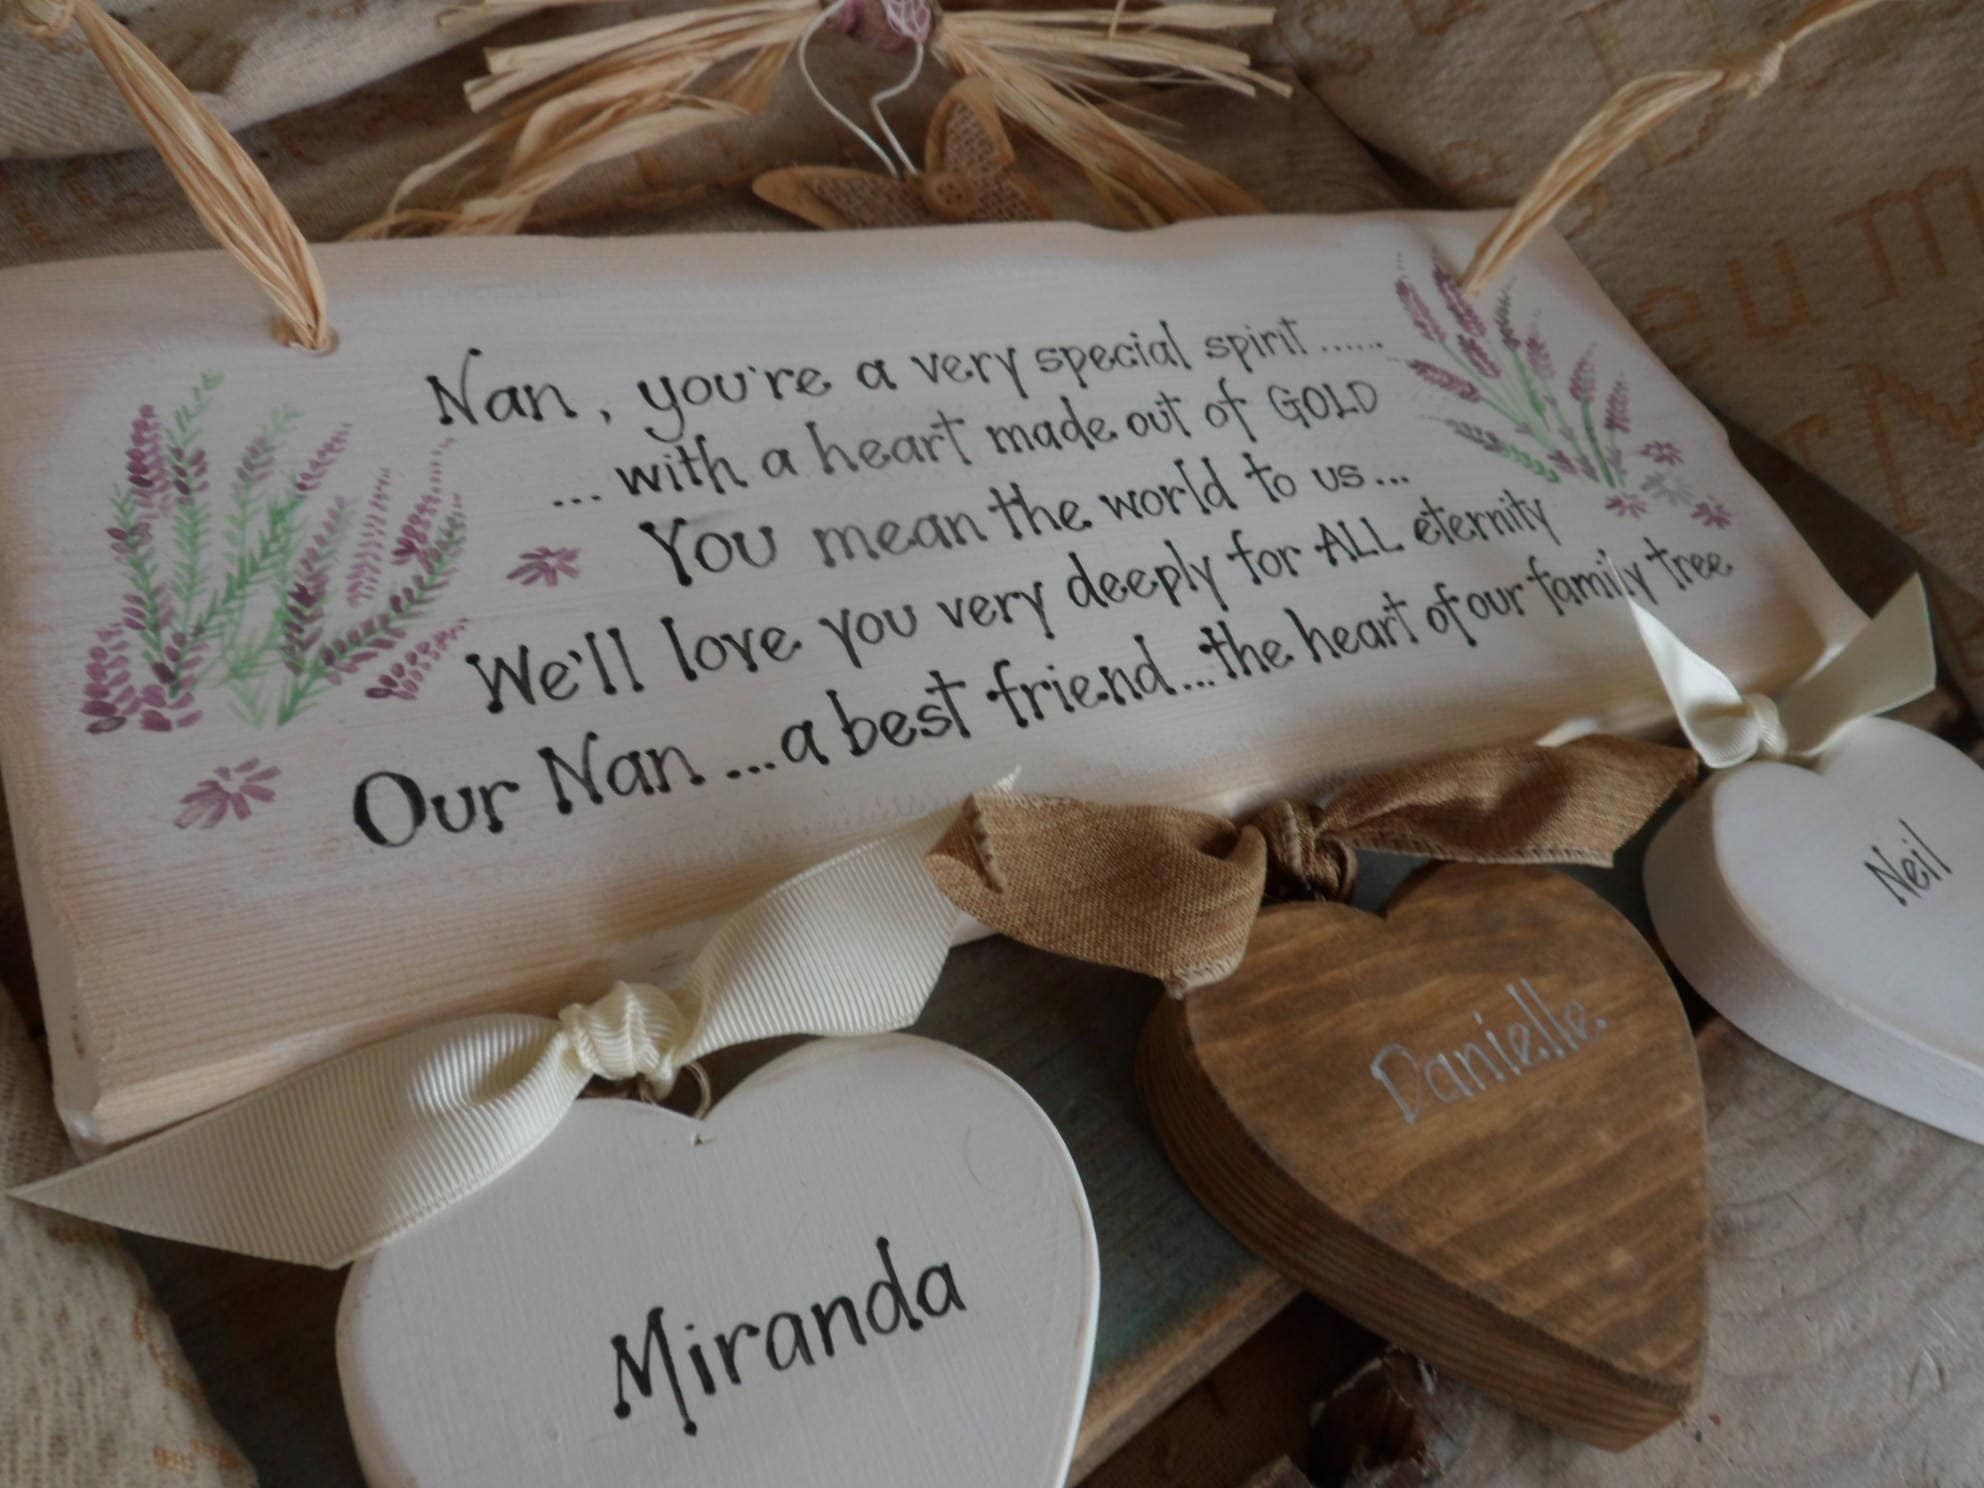 Nan, you're a very special spirit ......
... with a heart made out of GOLD
You mean the world to us...
We'll love you very deeply for ALL eternity
Our Nan...a best friend...the heart of our family tree
Miranda
Danielle.
Neil